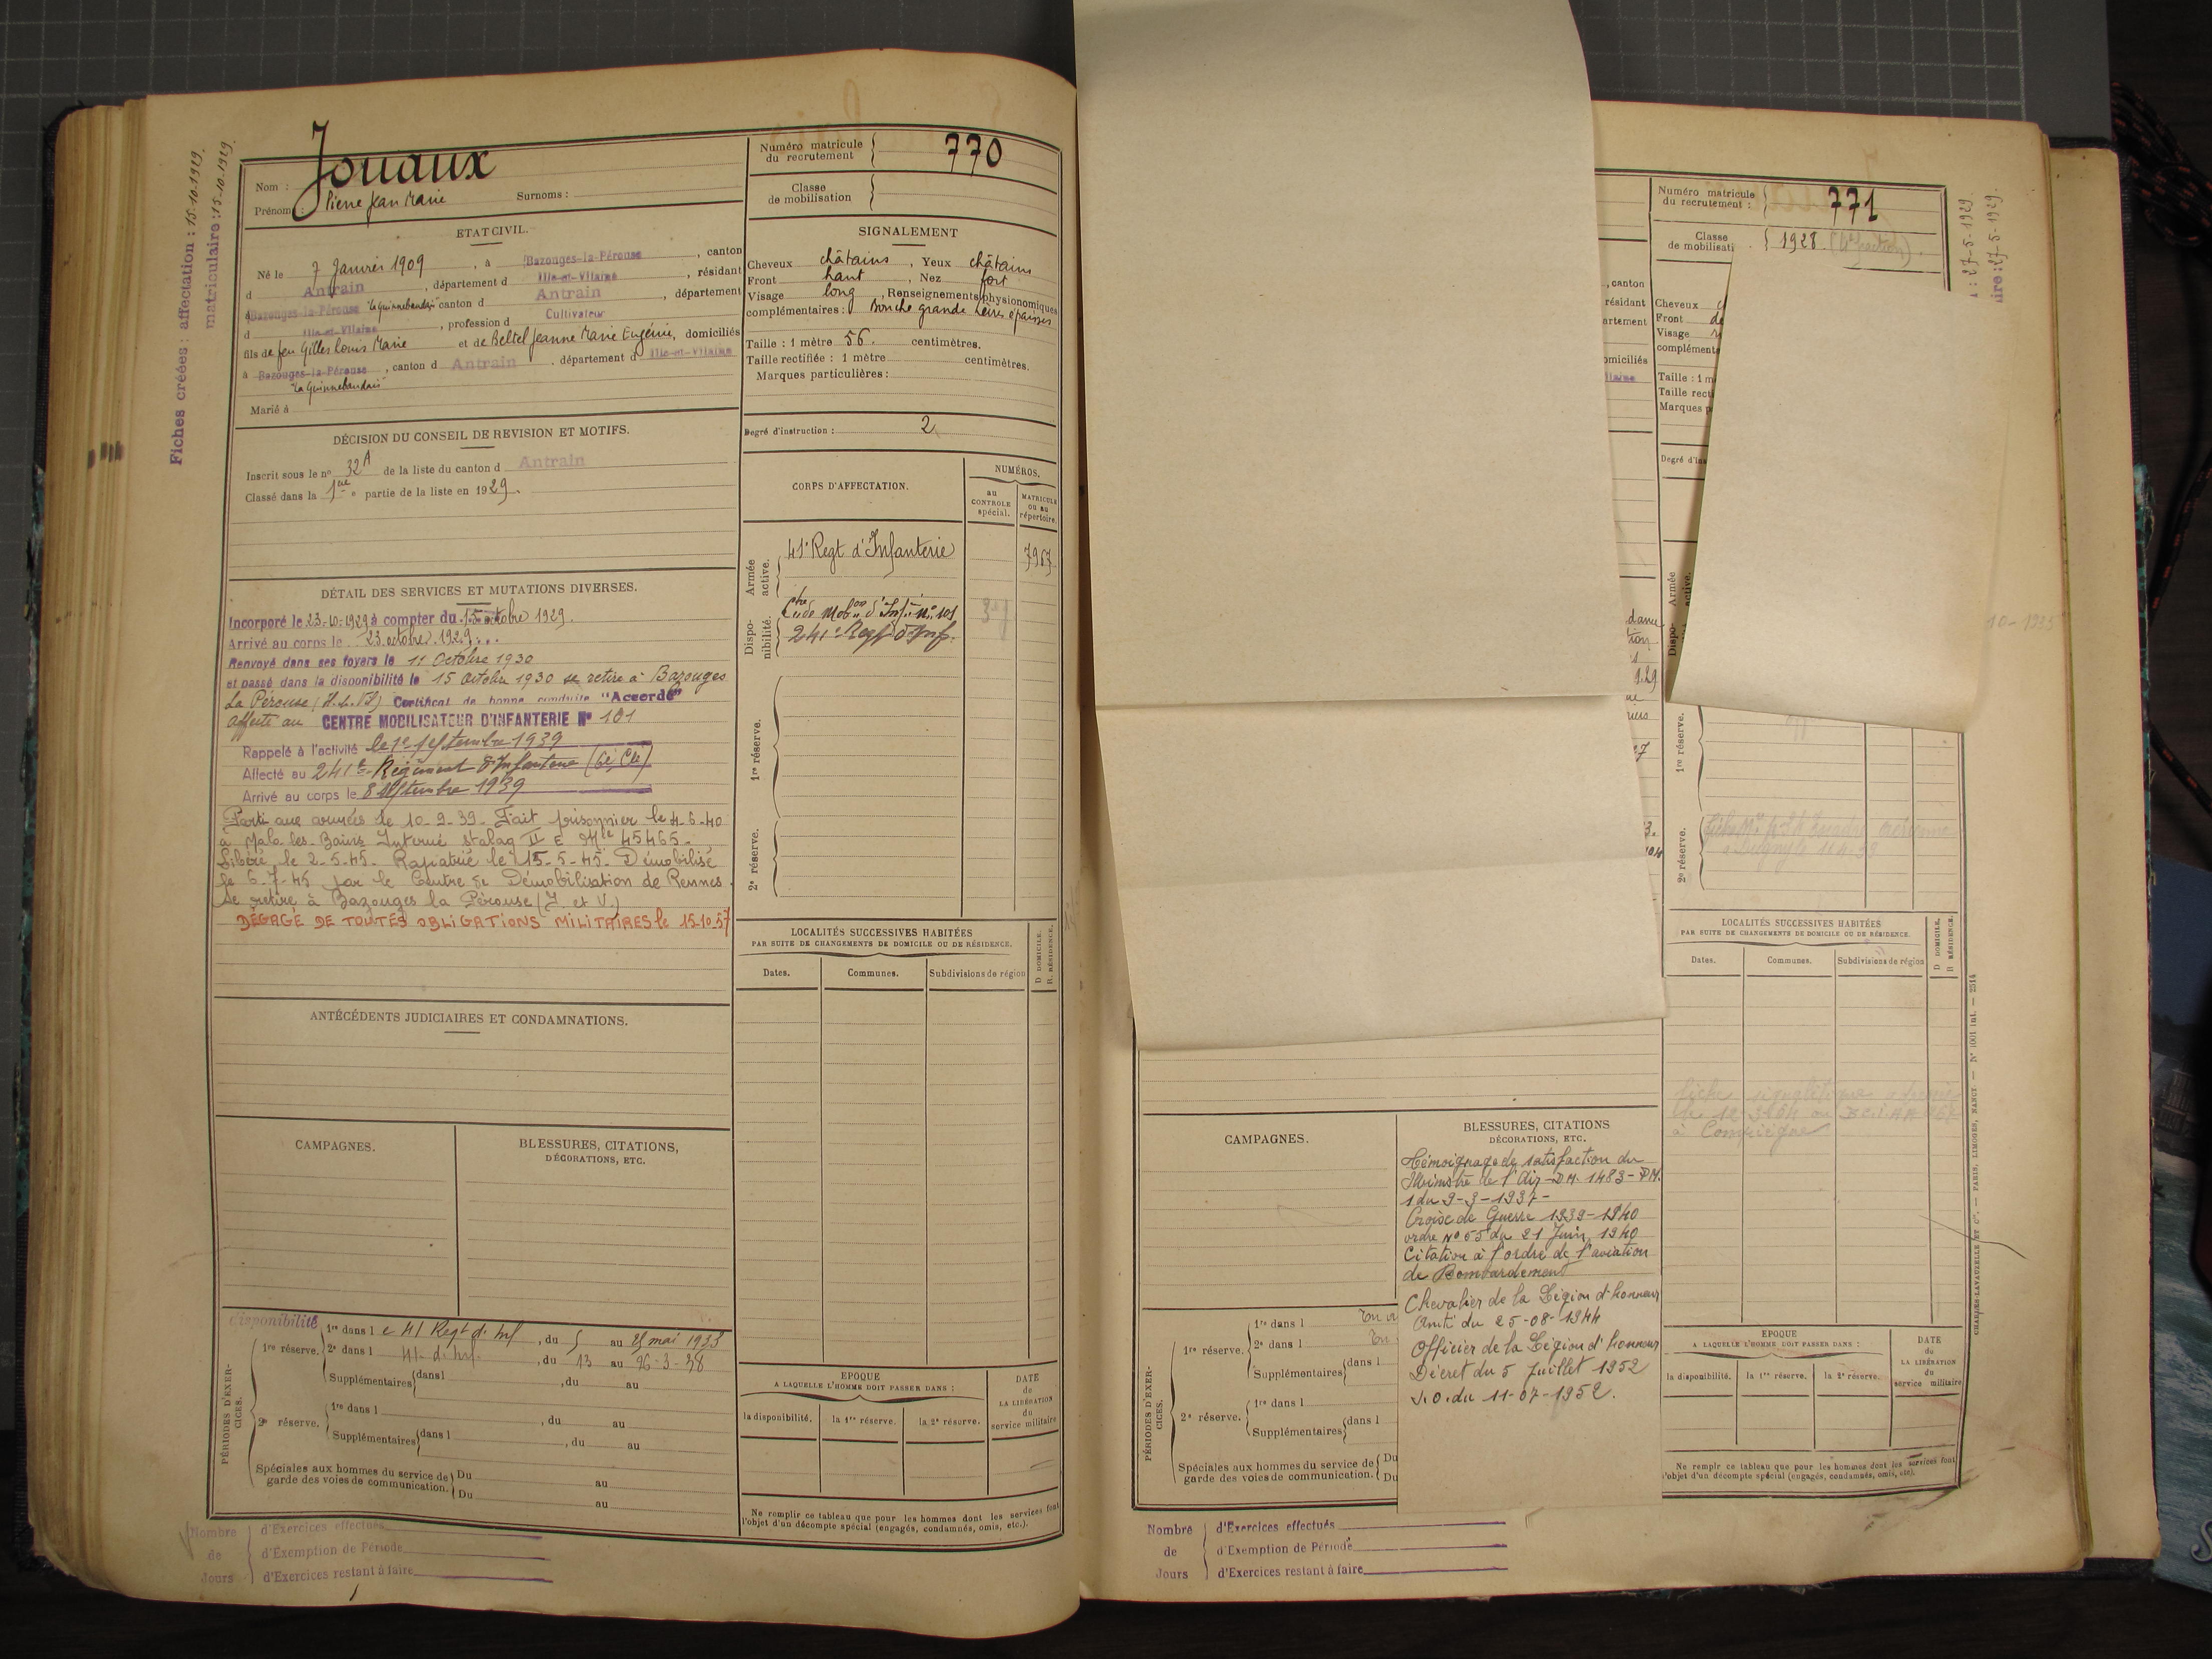 Fiches créées : affectation : 15.10.1929.
matriculaire : 15-10.1929
Nom : Jouaux
Prénoms : Pierre Jean Marie Surnoms :
ETAT CIVIL.
Né le 7 Janvier 1909, à Bazouges-la-Pérouse, canton
d Antrain, département d Ille-et-Vilaine, résidant
à Bazouges-la-Pérouse canton d Antrain, département
d Ille-et-Vilaine, profession d Cultivateur
fils de feu Gilles Louis Marie et de Beltel Jeanne Marie Eugénie, domiciliés
à Bazouges-la-Pérouse, canton d Antrain, département d Ille-et-Vilaine
Marié à
DÉCISION DU CONSEIL DE REVISION ET MOTIFS.
Inscrit sous le n° 32A de la liste du canton d Antrain
Classé dans la 1ère partie de la liste en 1929.
DÉTAIL DES SERVICES ET MUTATIONS DIVERSES.
Incorporé le 23-10-1929 à compter du 15 octobre 1929.
Arrivé au corps le 23 octobre 1929
Renvoyé dans ses foyers le 11 Octobre 1930
et passé dans la disponibilité le 15 Octobre 1930 se retire à Bazouges
La Pérouse Certificat de bonne conduite "Accordé"
affecté au CENTRE MOBILISATEUR D'INFANTERIE N° 101
Rappelé à l'activité le 1er septembre 1939
Affecté au 241e Régiment d'Infanterie (6e Cie)
Arrivé au corps le 8 septembre 1939
Parti aux armées le 10-9-39. Fait prisonnier le 4-6-40
à Malo-les-Bains Interné stalag II E Mle 45465.
Libéré le 2-5-45. Rapatrié le 15-5-45. Démobilisé
le 6-7-45 par le Centre de Démobilisation de Rennes.
Se retire à Bazouges la Pérouse (I. et V.)
DÉGAGÉ DE TOUTES OBLIGATIONS MILITAIRES le 15.10.57
ANTÉCÉDENTS JUDICIAIRES ET CONDAMNATIONS.
CAMPAGNES.
BLESSURES, CITATIONS,
DÉCORATIONS, ETC.
disponibilité
PÉRIODES D'EXERCICES.
1re réserve. 1re dans l e 41 Regt d'Inf, du 5 au 25 mai 1933
2e dans l 41 d'Inf., du 13 au 26-3-38
Supplémentaires dans l , du au
2e réserve. 1re dans l , du au
Supplémentaires dans l , du au
Spéciales aux hommes du service de garde des voies de communication. Du au
Du au
Nombre de Jours
d'Exercices effectués
d'Exemption de Période
d'Exercices restant à faire
Numéro matricule du recrutement 770
Classe de mobilisation
SIGNALEMENT
Cheveux châtains, Yeux châtains
Front haut, Nez fort
Visage long, Renseignements physionomiques
complémentaires : Bouche grande lèvres épaisses
Taille : 1 mètre 56. centimètres.
Taille rectifiée : 1 mètre centimètres.
Marques particulières :
Degré d'instruction : 2
CORPS D'AFFECTATION.
NUMÉROS.
au CONTROLE spécial.
MATRICULE ou au répertoire.
Armée active.
41e Regt d'Infanterie 7967
Disponibilité.
Ctre de Mobon d'Inf. N° 101
241e Regt d'Inf.
1re réserve.
2e réserve.
LOCALITÉS SUCCESSIVES HABITÉES
PAR SUITE DE CHANGEMENTS DE DOMICILE OU DE RÉSIDENCE.
Dates. Communes. Subdivisions de région
D DOMICILE. R. RÉSIDENCE.
EPOQUE
A LAQUELLE L'HOMME DOIT PASSER DANS :
la disponibilité. la 1re réserve. la 2e réserve.
DATE de LA LIBÉRATION du service militaire
Ne remplir ce tableau que pour les hommes dont les services font
l'objet d'un décompte spécial (engagés, condamnés, omis, etc.).
Numéro matricule du recrutement : 771
Classe de mobilisati 1928
: 27-5-1929
ire : 27-5-1929.
, canton
résidant
artement
omiciliés
Cheveux
Front
Visage
compléments
Taille : 1 m
Taille recti
Marques p
Degré d'ins
Armée active.
Dispo-
1re réserve.
2e réserve.
10-1935
LOCALITÉS SUCCESSIVES HABITÉES
PAR SUITE DE CHANGEMENTS DE DOMICILE OU DE RÉSIDENCE.
Dates. Communes. Subdivisions de région
D DOMICILE. R. RÉSIDENCE.
à Compiègne
CAMPAGNES.
BLESSURES, CITATIONS
DÉCORATIONS, ETC.
Témoignage de satisfaction du
Ministre de l'Air - DM. 1483 - PM.
1 du 9-3-1937-
Croix de Guerre 1939-1940
ordre N° 55 du 21 Juin 1940
Citation à l'ordre de l'aviation
de Bombardement
Chevalier de la Légion d'honneur
du 25-08-1944
Officier de la Légion d'honneur
Décret du 5 Juillet 1952
J.O. du 11-07-1952.
PÉRIODES D'EXERCICES.
1re réserve. 1re dans l
2e dans l
Supplémentaires dans l
2e réserve. 1re dans l
Supplémentaires dans l
Spéciales aux hommes du service de garde des voies de communication. Du
Du
EPOQUE
A LAQUELLE L'HOMME DOIT PASSER DANS :
la disponibilité. la 1re réserve. la 2e réserve.
DATE du LA LIBÉRATION du service militaire
Ne remplir ce tableau que pour les hommes dont les services font
l'objet d'un décompte spécial (engagés, condamnés, omis, etc).
CHARLES-LAVAUZELLE ET Cie. — PARIS, LIMOGES, NANCY. — N° 1001 Int. — 2514
Nombre de Jours
d'Exercices effectués
d'Exemption de Période
d'Exercices restant à faire